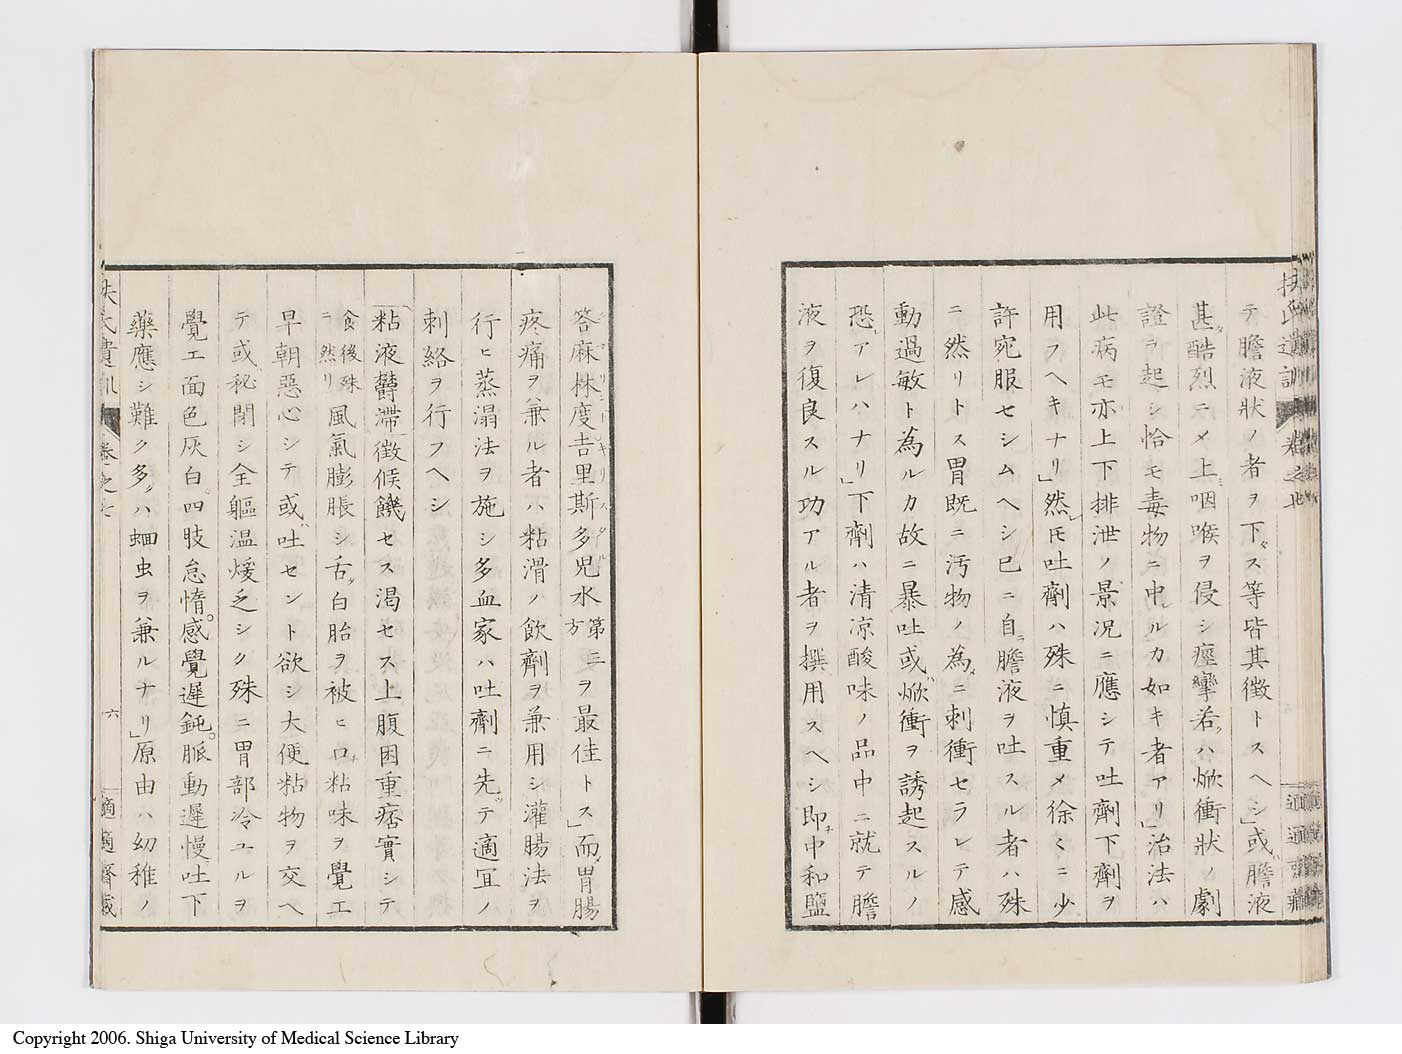 テ膽液狀ノ者ヲ下ス等皆其徵トスヘシ」或膽液
甚酷烈ニメ上咽喉ヲ侵シ痙攣若ハ焮衝狀ノ劇
證ヲ起シ恰モ毒物ニ中ルカ如キ者アリ」治法ハ
此病モ亦上下排泄ノ景況ニ應シテ吐劑下劑ヲ
用フヘキナリ」然𪜈吐劑ハ殊ニ慎重メ徐々ニ少
許宛服セシムヘシ已ニ自ラ膽液ヲ吐スル者ハ殊
ニ然リトス胃既ニ汚物ノ為メニ刺衝セラレテ感
動過敏ト為ルカ故ニ暴吐或ハ焮衝ヲ誘起スルノ
恐アレハナリ」下劑ハ清凉酸味ノ品中ニ就テ膽
液ヲ復良スル功アル者ヲ撰用スヘシ即チ中和鹽
扶氏遺訓 卷之七 適適齋藏
答麻林度吉里斯多兒水第二方ヲ最佳トス」而メ胃腸
タマリンドキリスタル
疼痛ヲ兼ル者ハ粘滑ノ飲劑ヲ兼用シ灌腸法ヲ
行ヒ蒸溻法ヲ施シ多血家ハ吐劑ニ先テ適宜ノ
刺絡ヲ行フヘシ
粘液鬱滯徵候饑セス渴セス上腹困重痞實シテ
食後殊ニ然リ風氣膨脹シ舌ニ白胎ヲ被ヒ口ニ粘味ヲ覺エ
早朝惡心シテ或ハ吐セント欲シ大便粘物ヲ交ヘ
テ或ハ秘閉シ全軀温煖乏シク殊ニ胃部冷ユルヲ
覺エ面色灰白。四肢怠惰。感覺遲鈍。脈動遲慢吐下
藥應シ難ク多ノハ蛔虫ヲ兼ルナリ」原由ハ幼稚ノ
扶氏遺訓 卷之七 六 適適齋藏
Copyright 2006. Shiga University of Medical Science Library